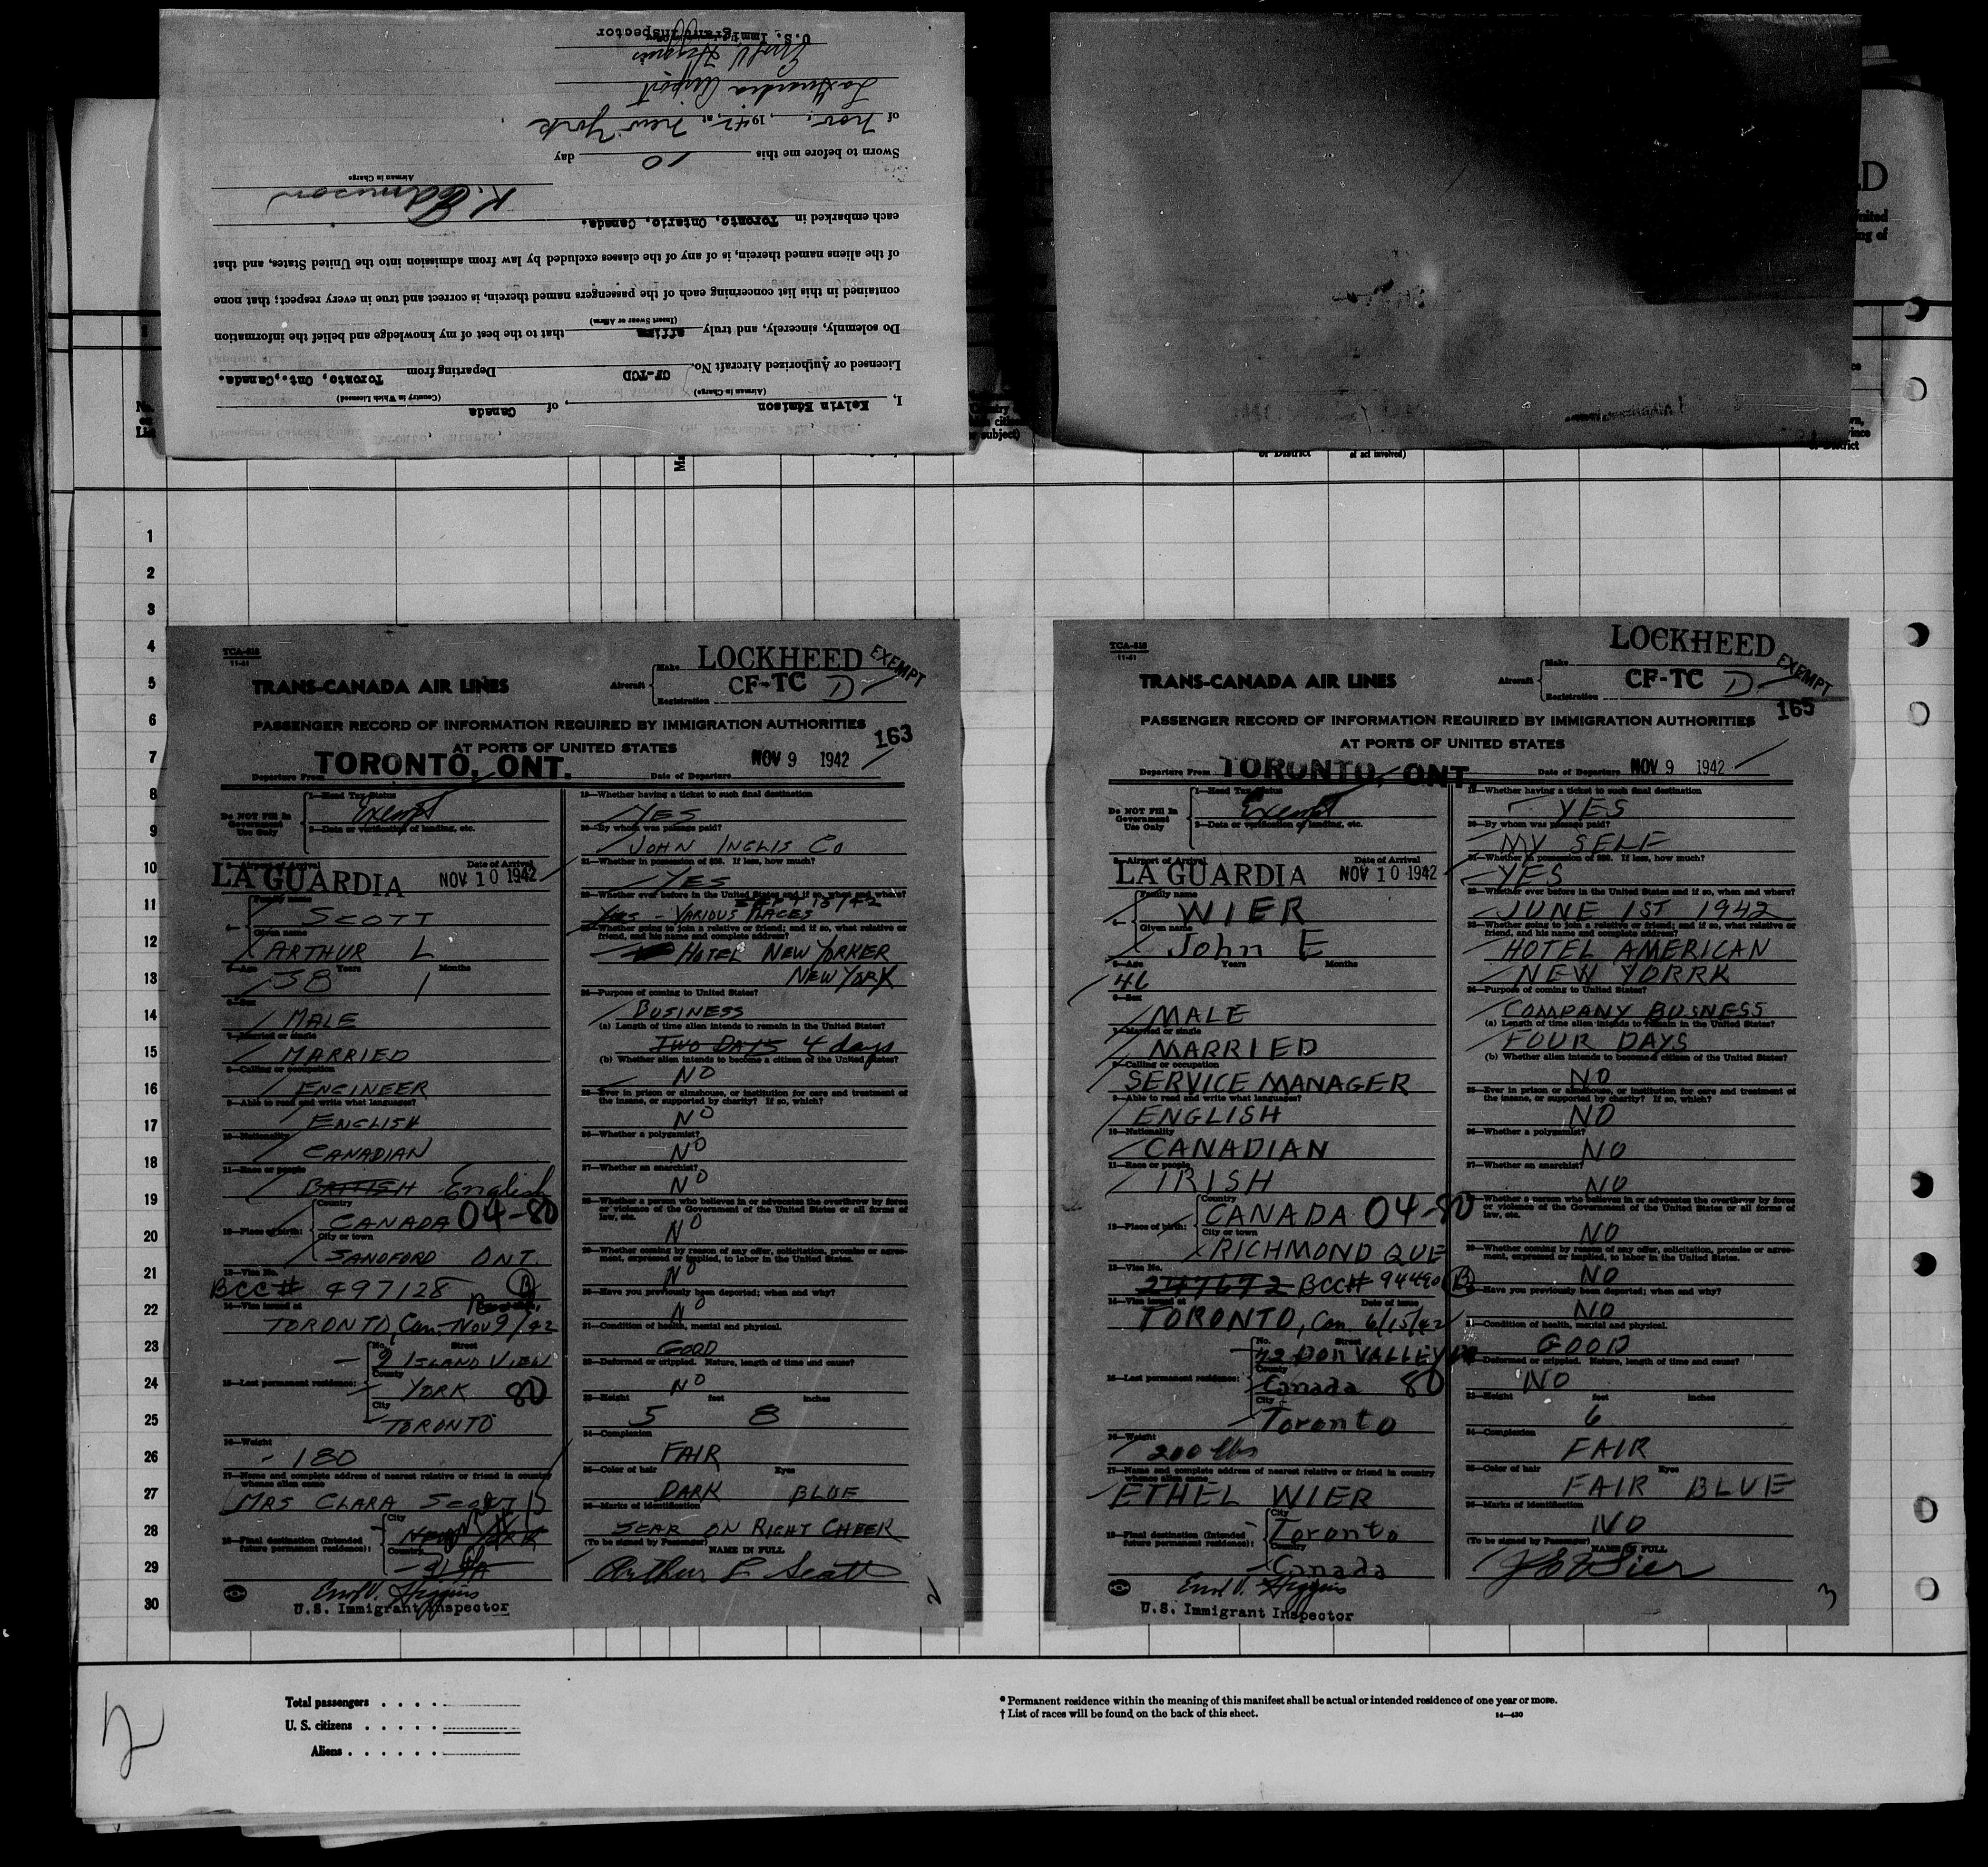 I, Kelvin Edmison of Canada
(Airman in Charge) (Country in Which Licensed)
Licensed or Authorized Aircraft No. CF-TCD Departing from Toronto, Ont., Canada.
Do solemnly, sincerely, and truly affirm that to the best of my knowledge and belief the information
(Insert Swear or Affirm)
contained in this list concerning each of the passengers named therein, is correct and true in every respect; that none
of the aliens named therein, is of any of the classes excluded by law from admission into the United States, and that
each embarked in Toronto, Ontario, Canada.
K. Edmison
Airman in Charge
Sworn to before me this 10 day
of Nov., 1942, at New York
LaGuardia Airport
Errol V. Higgins
U.S. Immigrant Inspector
1
2
3
4
5
6
7
8
9
10
11
12
13
14
15
16
17
18
19
20
21
22
23
24
25
26
27
28
29
30
TCA-518
11-41
Aircraft
Make LOCKHEED
Registration CF-TC D
EXEMPT
TRANS-CANADA AIR LINES
PASSENGER RECORD OF INFORMATION REQUIRED BY IMMIGRATION AUTHORITIES
AT PORTS OF UNITED STATES
163
Departure From TORONTO, ONT. Date of Departure NOV 9 1942
Do NOT Fill In
Government
Use Only
1—Head Tax Status
Exempt
2—Data or verification of landing, etc.
3—Airport of Arrival Date of Arrival
LA GUARDIA NOV 10 1942
4— Family name
SCOTT
Given name
ARTHUR L
5—Age Years Months
38 1
6—Sex
MALE
7—Married or single
MARRIED
8—Calling or occupation
ENGINEER
9—Able to read and write what languages?
ENGLISH
10—Nationality
CANADIAN
11—Race or people
BRITISH English
12—Place of birth:
Country
CANADA 04-80
City or town
SANDFORD ONT.
13—Visa No.
BCC# 497128 B
14—Visa issued at
TORONTO, Can. Nov 9/42
15—Last permanent residence:
No. Street
9 ISLAND VIEW
County
YORK 80
City
TORONTO
16—Weight
180
17—Name and complete address of nearest relative or friend in country
whence alien came
MRS CLARA SCOTT 15
18—Final destination (Intended
future permanent residence):
City
NEW YORK
Country
Errol V. Higgins
U.S. Immigrant Inspector
19—Whether having a ticket to such final destination
YES
20—By whom was passage paid?
JOHN INGLIS CO
21—Whether in possession of $50. If less, how much?
YES
22—Whether ever before in the United States and if so, when and where?
YES - VARIOUS PLACES
23—Whether going to join a relative or friend; and if so, what relative or
friend, and his name and complete address?
HOTEL NEW YORKER
NEW YORK
24—Purpose of coming to United States?
BUSINESS
(a) Length of time alien intends to remain in the United States?
TWO DAYS 4 days
(b) Whether alien intends to become a citizen of the United States?
NO
25—Ever in prison or almshouse, or institution for care and treatment of
the insane, or supported by charity? If so, which?
NO
26—Whether a polygamist?
NO
27—Whether an anarchist?
NO
28—Whether a person who believes in or advocates the overthrow by force
or violence of the Government of the United States or all forms of
law, etc.
NO
29—Whether coming by reason of any offer, solicitation, promise or agree-
ment, expressed or implied, to labor in the United States.
NO
30—Have you previously been deported; when and why?
NO
31—Condition of health, mental and physical.
GOOD
32—Deformed or crippled. Nature, length of time and cause?
NO
33—Height feet inches
5 8
34—Complexion
FAIR
35—Color of hair Eyes
DARK BLUE
36—Marks of identification
SCAR ON RIGHT CHEEK
(To be signed by Passenger)
NAME IN FULL
Arthur L Scott
2
TCA-518
11-41
Aircraft
Make LOCKHEED
Registration CF-TC D
EXEMPT
TRANS-CANADA AIR LINES
165
PASSENGER RECORD OF INFORMATION REQUIRED BY IMMIGRATION AUTHORITIES
AT PORTS OF UNITED STATES
Departure From TORONTO, ONT Date of Departure NOV 9 1942
Do NOT Fill In
Government
Use Only
1—Head Tax Status
Exempt
2—Data or verification of landing, etc.
3—Airport of Arrival Date of Arrival
LA GUARDIA NOV 10 1942
4— Family name
WIER
Given name
John E
5—Age Years Months
46
6—Sex
MALE
7—Married or single
MARRIED
8—Calling or occupation
SERVICE MANAGER
9—Able to read and write what languages?
ENGLISH
10—Nationality
CANADIAN
11—Race or people
IRISH
12—Place of birth:
Country
CANADA 04-80
City or town
RICHMOND QUE
13—Visa No.
247672 BCC# 94490 B
14—Visa issued at Date of issue
TORONTO, Can 6/15/42
15—Last permanent residence:
No. Street
72 DON VALLEY DR
County
Canada 80
City
Toronto
16—Weight
200 lbs
17—Name and complete address of nearest relative or friend in country
whence alien came
ETHEL WIER
18—Final destination (Intended
future permanent residence):
City
Toronto
Country
Canada
Errol V. Higgins
U.S. Immigrant Inspector
19—Whether having a ticket to such final destination
YES
20—By whom was passage paid?
MY SELF
21—Whether in possession of $50. If less, how much?
YES
22—Whether ever before in the United States and if so, when and where?
JUNE 1ST 1942
23—Whether going to join a relative or friend; and if so, what relative or
friend, and his name and complete address?
HOTEL AMERICAN
NEW YORRK
24—Purpose of coming to United States?
COMPANY BUSNESS
(a) Length of time alien intends to remain in the United States?
FOUR DAYS
(b) Whether alien intends to become a citizen of the United States?
NO
25—Ever in prison or almshouse, or institution for care and treatment of
the insane, or supported by charity? If so, which?
NO
26—Whether a polygamist?
NO
27—Whether an anarchist?
NO
28—Whether a person who believes in or advocates the overthrow by force
or violence of the Government of the United States or all forms of
law, etc.
NO
29—Whether coming by reason of any offer, solicitation, promise or agree-
ment, expressed or implied, to labor in the United States.
NO
30—Have you previously been deported; when and why?
NO
31—Condition of health, mental and physical.
GOOD
32—Deformed or crippled. Nature, length of time and cause?
NO
33—Height feet inches
6
34—Complexion
FAIR
35—Color of hair Eyes
FAIR BLUE
36—Marks of identification
NO
(To be signed by Passenger)
NAME IN FULL
J E Wier
3
2
Total passengers . . . .
U. S. citizens . . . . .
Aliens . . . . . .
* Permanent residence within the meaning of this manifest shall be actual or intended residence of one year or more.
† List of races will be found on the back of this sheet.
14—430